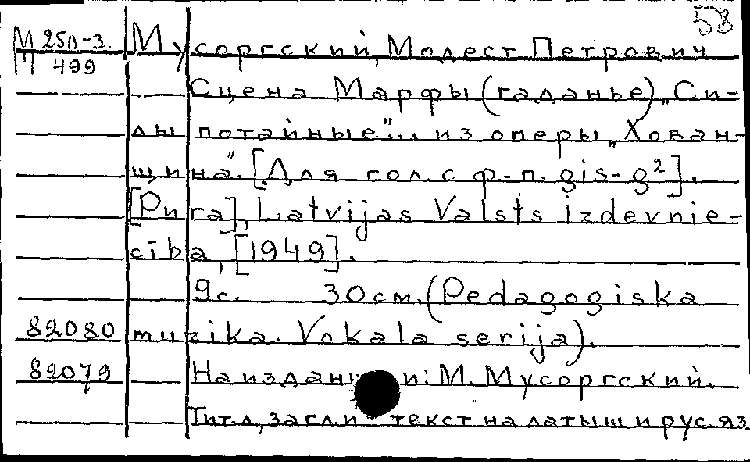 58
М 250-3 Мусоргский, Модест Петрович
П 499
Сцена Марфы (гаданье) „Си-
лы потайные"... из оперы „Хован-
щина". [Для гол. с ф-п. gis-g²].
[Рига], Latvijas Valsts izdevnie-
cība, [1949].
9с. 30 см. (Pedagogiska
82080 muzika. Vokala serija).
82079 На издан и: М. Мусоргский.
Тит. л., загл. и текст на латыш и рус. яз.